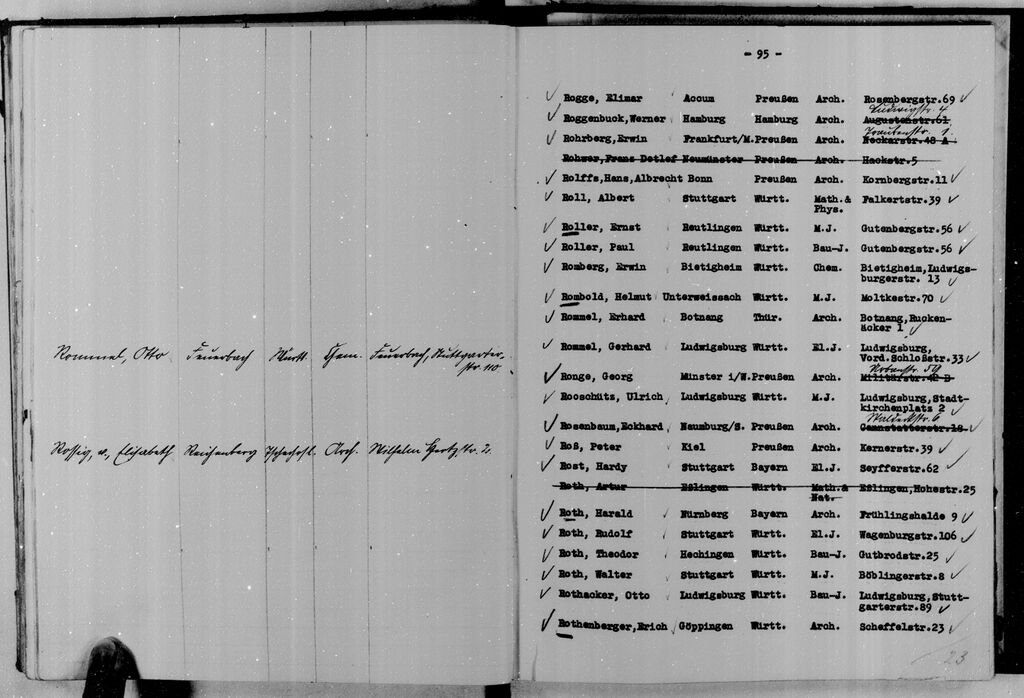 Rommel, Otto Feuerbach Württ. Chem. Feuerbach, Stuttgarter-
str. 110
Rossig, v., Elisabeth Reichenberg Tschechosl. Arch. Wilhelm Hertzstr. 2.
- 95 -
Rogge, Elimar Accum Preußen Arch. Rosenbergstr.69
Ludwigstr. 4
Roggenbuck,Werner Hamburg Hamburg Arch. Augustenstr.61
Rohrberg,Erwin Frankfurt/M.Preußen Arch. Neckarstr.48 A
Rohwer,Franz Detlef Neumünster Preußen Arch. Hackstr.5
Rolffs,Hans,Albrecht Bonn Preußen Arch. Kornbergstr.11
Roll, Albert Stuttgart Württ. Math.& Falkertstr.39
Phys.
Roller, Ernst Reutlingen Württ. M.J. Gutenbergstr.56
Roller, Paul Reutlingen Württ. Bau-J. Gutenbergstr.56
Romberg, Erwin Bietigheim Württ. Chem. Bietigheim,Ludwigs-
burgerstr. 13
Rombold, Helmut Unterweissach Württ. M.J. Moltkestr.70
Rommel, Erhard Botnang Thür. Arch. Botnang,Rucken-
äcker 1
Rommel, Gerhard Ludwigsburg Württ. El.J. Ludwigsburg,
Vord.Schloßstr.33
Urbanstr. 59
Ronge, Georg Münster i/W.Preußen Arch. Militärstr.42 B
Rooschütz, Ulrich Ludwigsburg Württ. M.J. Ludwigsburg,Stadt-
kirchenplatz 2
Waldeckstr. 6
Rosenbaum,Eckhard Naumburg/S. Preußen Arch. Cannstatterstr.18
Roß, Peter Kiel Preußen Arch. Kernerstr.39
Rost, Hardy Stuttgart Bayern El.J. Seyfferstr.62
Roth, Artur Eßlingen Württ. Math.& Eßlingen,Hohestr.25
Nat.
Roth, Harald Nürnberg Bayern Arch. Frühlingshalde 9
Roth, Rudolf Stuttgart Württ. El.J. Wagenburgstr.106
Roth, Theodor Hechingen Württ. Bau-J. Gutbrodstr.25
Roth, Walter Stuttgart Württ. M.J. Böblingerstr.8
Rothacker, Otto Ludwigsburg Württ. Bau-J. Ludwigsburg,Stutt-
garterstr.89
Rothenberger,Erich Göppingen Württ. Arch. Scheffelstr.23
23